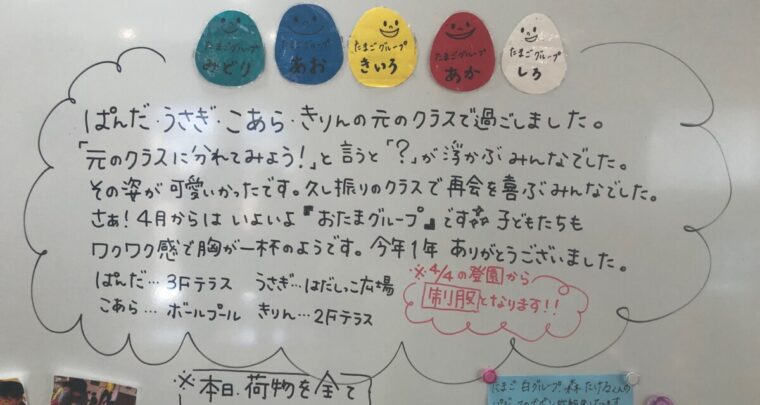 たまごグループ
みどり
たまごグループ
あお
たまごグループ
きいろ
たまごグループ
あか
たまごグループ
しろ
ぱんだ・うさぎ・こあら・きりんの元のクラスで過ごしました。
「元のクラスに分れてみよう!」と言うと「?」が浮かぶみんなでした。
その姿が可愛いかったです。久し振りのクラスで再会を喜ぶみんなでした。
さぁ!4月からはいよいよ『おたまグループ』です 子どもたちも
ワクワク感で胸が一杯のようです。今年1年 ありがとうございました。
ぱんだ…3Fテラス うさぎ…はだしっこ広場
こあら…ボールプール きりん…2Fテラス
※4/4の登園から
制服となります!!
※本日、荷物を全て
たまご 白グループ 森 たけるくんの